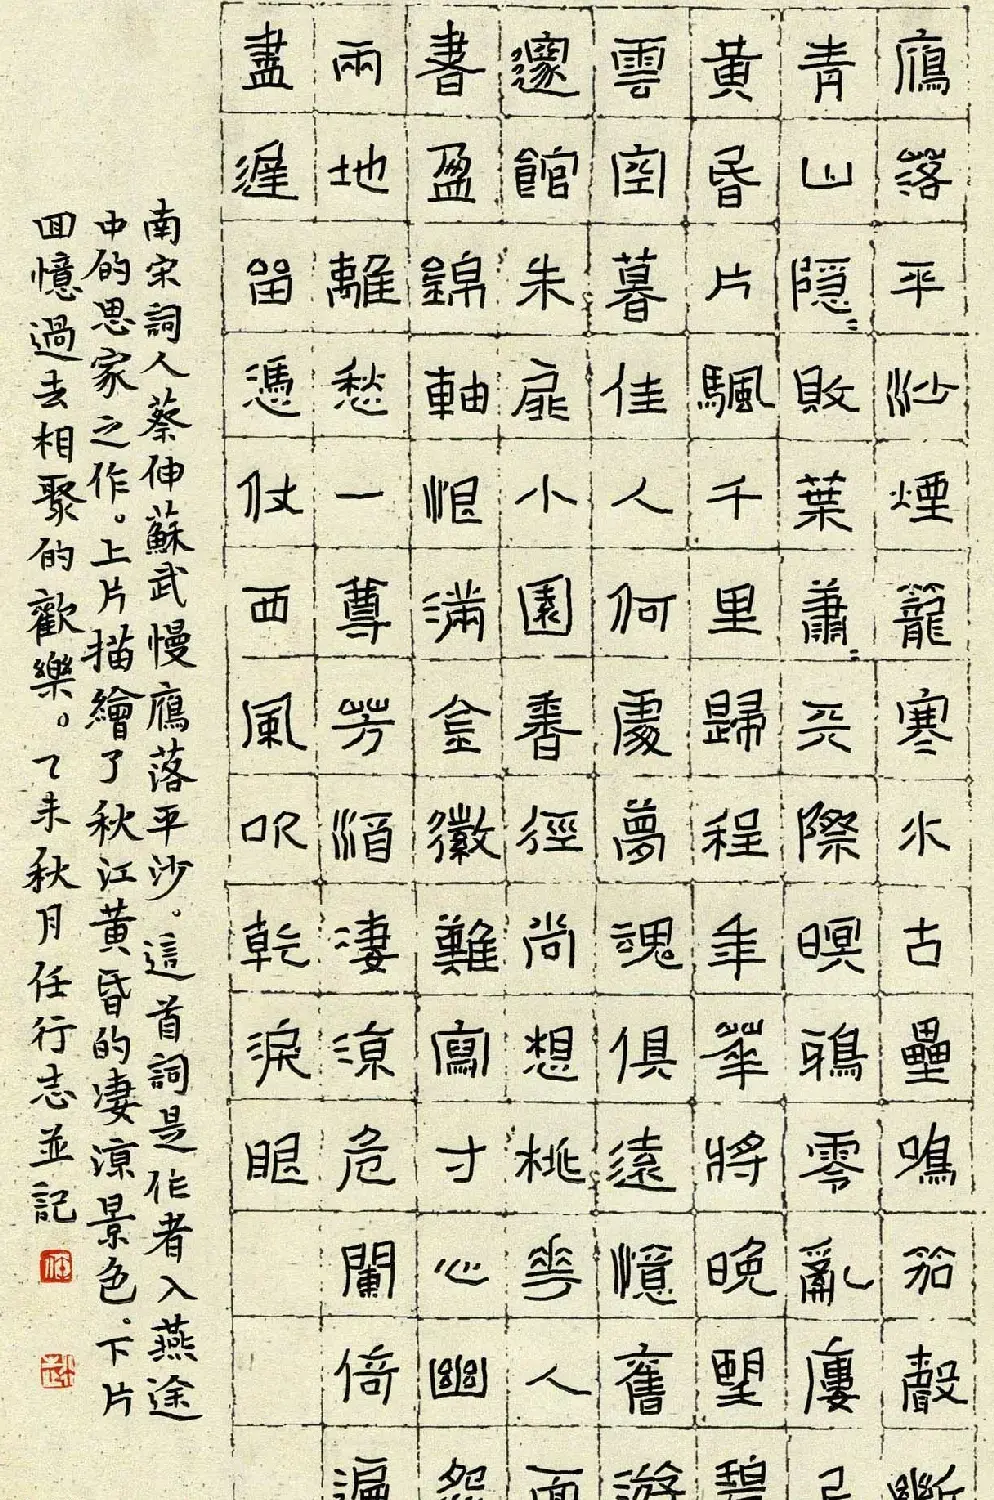 鴈落平沙煙籠寒水古壘鳴笳聲斷
青山隱〻敗葉蕭〻天際暝鴉零亂廔已
黃昏片颿千里歸程年華將晚望碧
雲空暮佳人何處夢魂俱遠憶舊游
邃館朱扉小園香徑尚想桃花人面
書盈錦軸恨滿金徽難寫寸心幽怨
兩地離愁一尊芳酒淒涼危闌倚遍
盡遲留憑仗西風吹乾淚眼
南宋詞人蔡伸蘇武慢鴈落平沙。這首詞是作者入燕途
中的思家之作。上片描繪了秋江黃昏的凄涼景色。下片
回憶過去相聚的歡樂。乙未秋月任行志並記